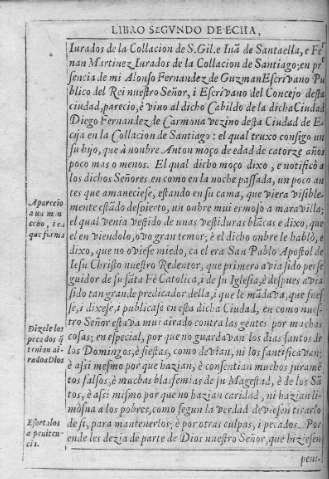 LIBRO SEGVNDO DE ECIIA,
Iurados de la Collacion de S. Gil. e Iuā de Santaella, e Fer
nan Martinez Iurados de la Collacion de Santiago; en pre
sencia de mi Alonso Fernandez de Guzman Escrivano Pu
blico del Rei nuestro Señor, i Escrivano del Concejo desta
ciudad, parecio, è vino al dicho Cabildo de la dicha Ciudad
Diego Fernandez de Carmona vezino desta Ciudad de E
cija en la Collacion de Santiago: e el qual truxo consigo un
su hijo, que à nonbre Anton moço de edad de catorze años
poco mas o menos. El qual dicho moço dixo, e notificò a
los dichos Señores en como en la noche passada, un poco an
tes que amaneciese, estando en su cama, que viera visible-
Aparecio
mente estādo despierto, un onbre mui ermoso a maravilla;
a us m n
cebo, i e
el qual venia vestido de unas vestiduras blācas e dixo, que
que forma
el en viendolo, ovo gran temor; è el dicho onbre le hablò, e
dixo, que no oviese miedo, ca el era San Pablo Apostol de
Iesu Christo nuestro Redentor, que primero avia sido perse
guidor de su sāta Fè Catolica, i de su Iglesia, è despues avia
sido tan grande predicador della, i que le mādava, que fues
se, i dixese, i publicase en esta dicha Ciudad, en como nues-
Digele los
tro Señor estava mui airado contra las gentes por muchas
pecados q̄
cosas; en especial, por que no guardavan los dias santos de
tenian ai-
los Domingos, è fiestas, como devian, ni los santificavan;
rado a Dios
è assi mesmo por que hazian, è consentian muchos juramē
tos falsos, è muchas blasfemias de su Magestad, è de los Sā
tos, è assi mismo por que no hazian caridad, ni hazian li-
mosna a los pobres, como segun la verdad devieran tirarlo
Esortalos
de si, para mantenerlos; è por otras culpas, i pecados. Por
a peniten
cia.
ende les dezia de parte de Dios nuestro Señor, que hiziesen
peni-